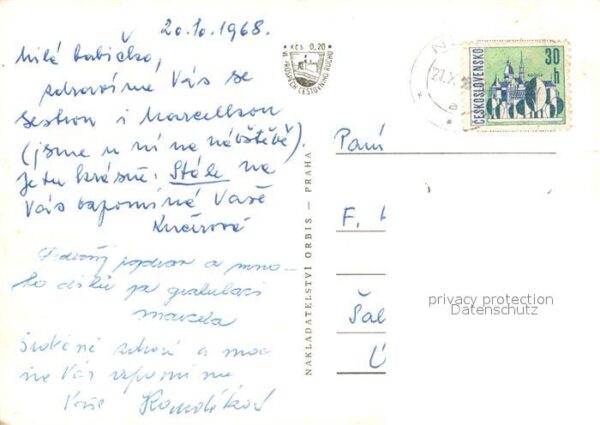 20.10.1968.
Milá babičko,
zdravíme Vás se
sestrou i Marcelkou
(jsme u ní na návštěvě).
Je tu krásně. Stále na
Vás vzpomíná Vaše
Kučírová
pozdrav a mno-
ho díků za gratulaci
Marcela
Srdečně zdraví a moc
na Vás vzpomíná
Vaše
Kčs 0,20
NAKLADATELSTVÍ ORBIS — PRAHA
ČESKOSLOVENSKO
30
h
Paní
F.
Šal
privacy protection
Datenschutz